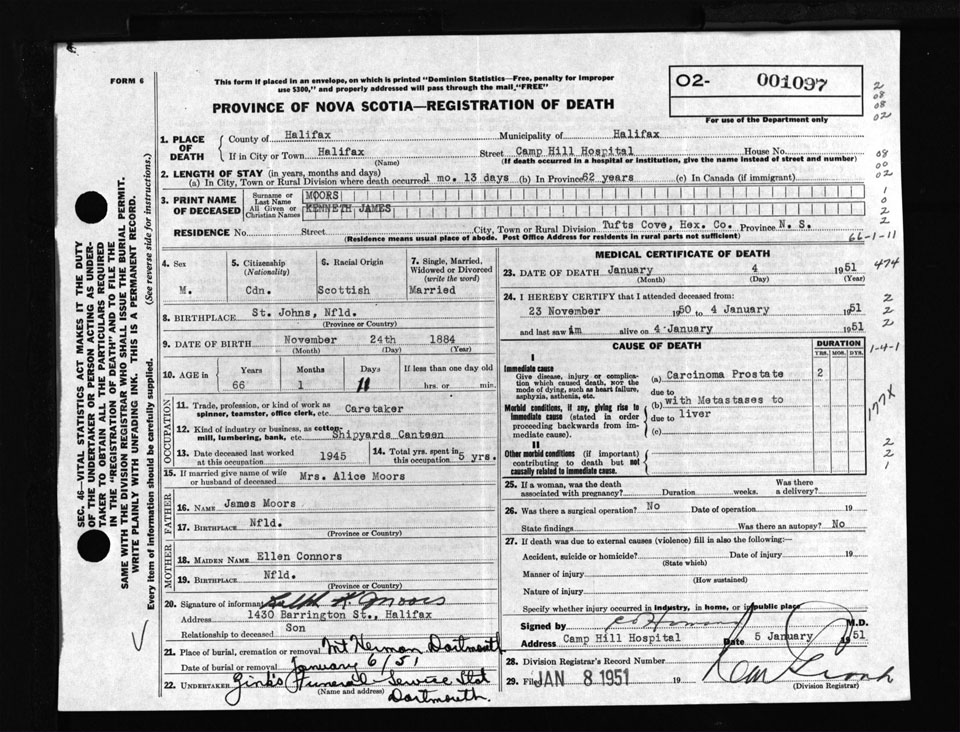 FORM 6
This form if placed in an envelope, on which is printed "Dominion Statistics—Free, penalty for improper
use $300," and properly addressed will pass through the mail "FREE"
PROVINCE OF NOVA SCOTIA—REGISTRATION OF DEATH
O2- 001097
For use of the Department only
1. PLACE OF DEATH { County of Halifax Municipality of Halifax
If in City or Town Halifax Street Camp Hill Hospital House No.
(Name) (If death occurred in a hospital or institution, give the name instead of street and number)
2. LENGTH OF STAY (in years, months and days)
(a) In City, Town or Rural Division where death occurred 1 mo. 13 days (b) In Province 62 years (c) In Canada (if immigrant)
3. PRINT NAME OF DECEASED
Surname or Last Name MOORS
All Given or Christian Names KENNETH JAMES
RESIDENCE No. Street City, Town or Rural Division Tufts Cove, Hex. Co. Province N. S.
(Residence means usual place of abode. Post Office Address for residents in rural parts not sufficient)
4. Sex
M.
5. Citizenship (Nationality)
Cdn.
6. Racial Origin
Scottish
7. Single, Married, Widowed or Divorced (write the word)
Married
8. BIRTHPLACE St. Johns, Nfld.
(Province or Country)
9. DATE OF BIRTH November 24th 1884
(Month) (Day) (Year)
10. AGE in Years Months Days If less than one day old
66 1 11 hrs. or min.
OCCUPATION
11. Trade, profession, or kind of work as
spinner, teamster, office clerk, etc. Caretaker
12. Kind of industry or business, as cotton-
mill, lumbering, bank, etc. Shipyards Canteen
13. Date deceased last worked at this occupation 1945
14. Total yrs. spent in this occupation 5 yrs.
15. If married give name of wife
or husband of deceased Mrs. Alice Moors
FATHER
16. NAME James Moors
17. BIRTHPLACE Nfld.
(Province or Country)
MOTHER
18. MAIDEN NAME Ellen Connors
19. BIRTHPLACE Nfld.
(Province or Country)
20. Signature of informant Moors
Address 1430 Barrington St., Halifax
Relationship to deceased Son
21. Place of burial, cremation or removal Mt Hermon Dartmouth
Date of burial or removal January 6/51
22. UNDERTAKER Zink's Funeral Service
(Name and address) Dartmouth
MEDICAL CERTIFICATE OF DEATH
23. DATE OF DEATH January 4 1951
(Month) (Day) (Year)
24. I HEREBY CERTIFY that I attended deceased from:
23 November 1950 to 4 January 1951
and last saw im alive on 4 January 1951
CAUSE OF DEATH
DURATION
YRS. MOS. DYS.
I
Immediate cause
Give disease, injury or complica-
tion which caused death, NOT the
mode of dying, such as heart failure,
asphyxia, asthenia, etc.
(a) Carcinoma Prostate 2
due to
Morbid conditions, if any, giving rise to
immediate cause (stated in order
proceeding backwards from im-
mediate cause).
(b) with Metastases to
due to liver
(c)
II
Other morbid conditions (if important)
contributing to death but not
causally related to immediate cause.
25. If a woman, was the death
associated with pregnancy? Duration weeks. Was there a delivery?
26. Was there a surgical operation? No Date of operation 19
State findings Was there an autopsy? No
27. If death was due to external causes (violence) fill in also the following:—
Accident, suicide or homicide? Date of injury 19
(State which)
Manner of injury
(How sustained)
Nature of injury
Specify whether injury occurred in industry, in home, or in public place
Signed by M.D.
Address Camp Hill Hospital Date 5 January 1951
28. Division Registrar's Record Number
29. Filed JAN 8 1951 19
(Division Registrar)
SEC. 46—VITAL STATISTICS ACT MAKES IT THE DUTY
OF THE UNDERTAKER OR PERSON ACTING AS UNDER-
TAKER TO OBTAIN ALL THE PARTICULARS REQUIRED
IN THE "REGISTRATION OF DEATH" AND TO FILE THE
SAME WITH THE DIVISION REGISTRAR WHO SHALL ISSUE THE BURIAL PERMIT.
WRITE PLAINLY WITH UNFADING INK. THIS IS A PERMANENT RECORD.
Every item of information should be carefully supplied. (See reverse side for instructions.)
2
08
08
02
08
00
02
1
0
2
2
66-1-11
474
2
2
2
1-4-1
177X
2
2
1